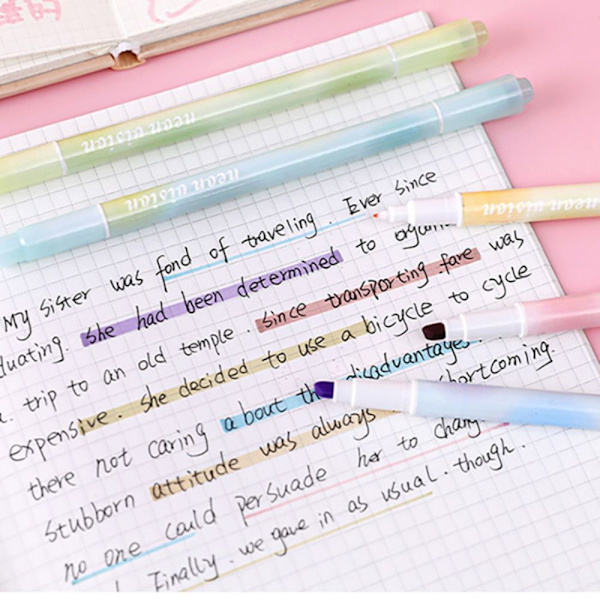 nean vision
nean vision
nean vision
My sister was fond of traveling. Ever since
she had been determined to
a trip to an old temple. since transporting fare was
expensive. she decided to use a bicycle to cycle
there not caring about the disadvantages.
stubborn attitude was always shortcoming.
no one could persuade her to
Finally. we gave in as usual. though.